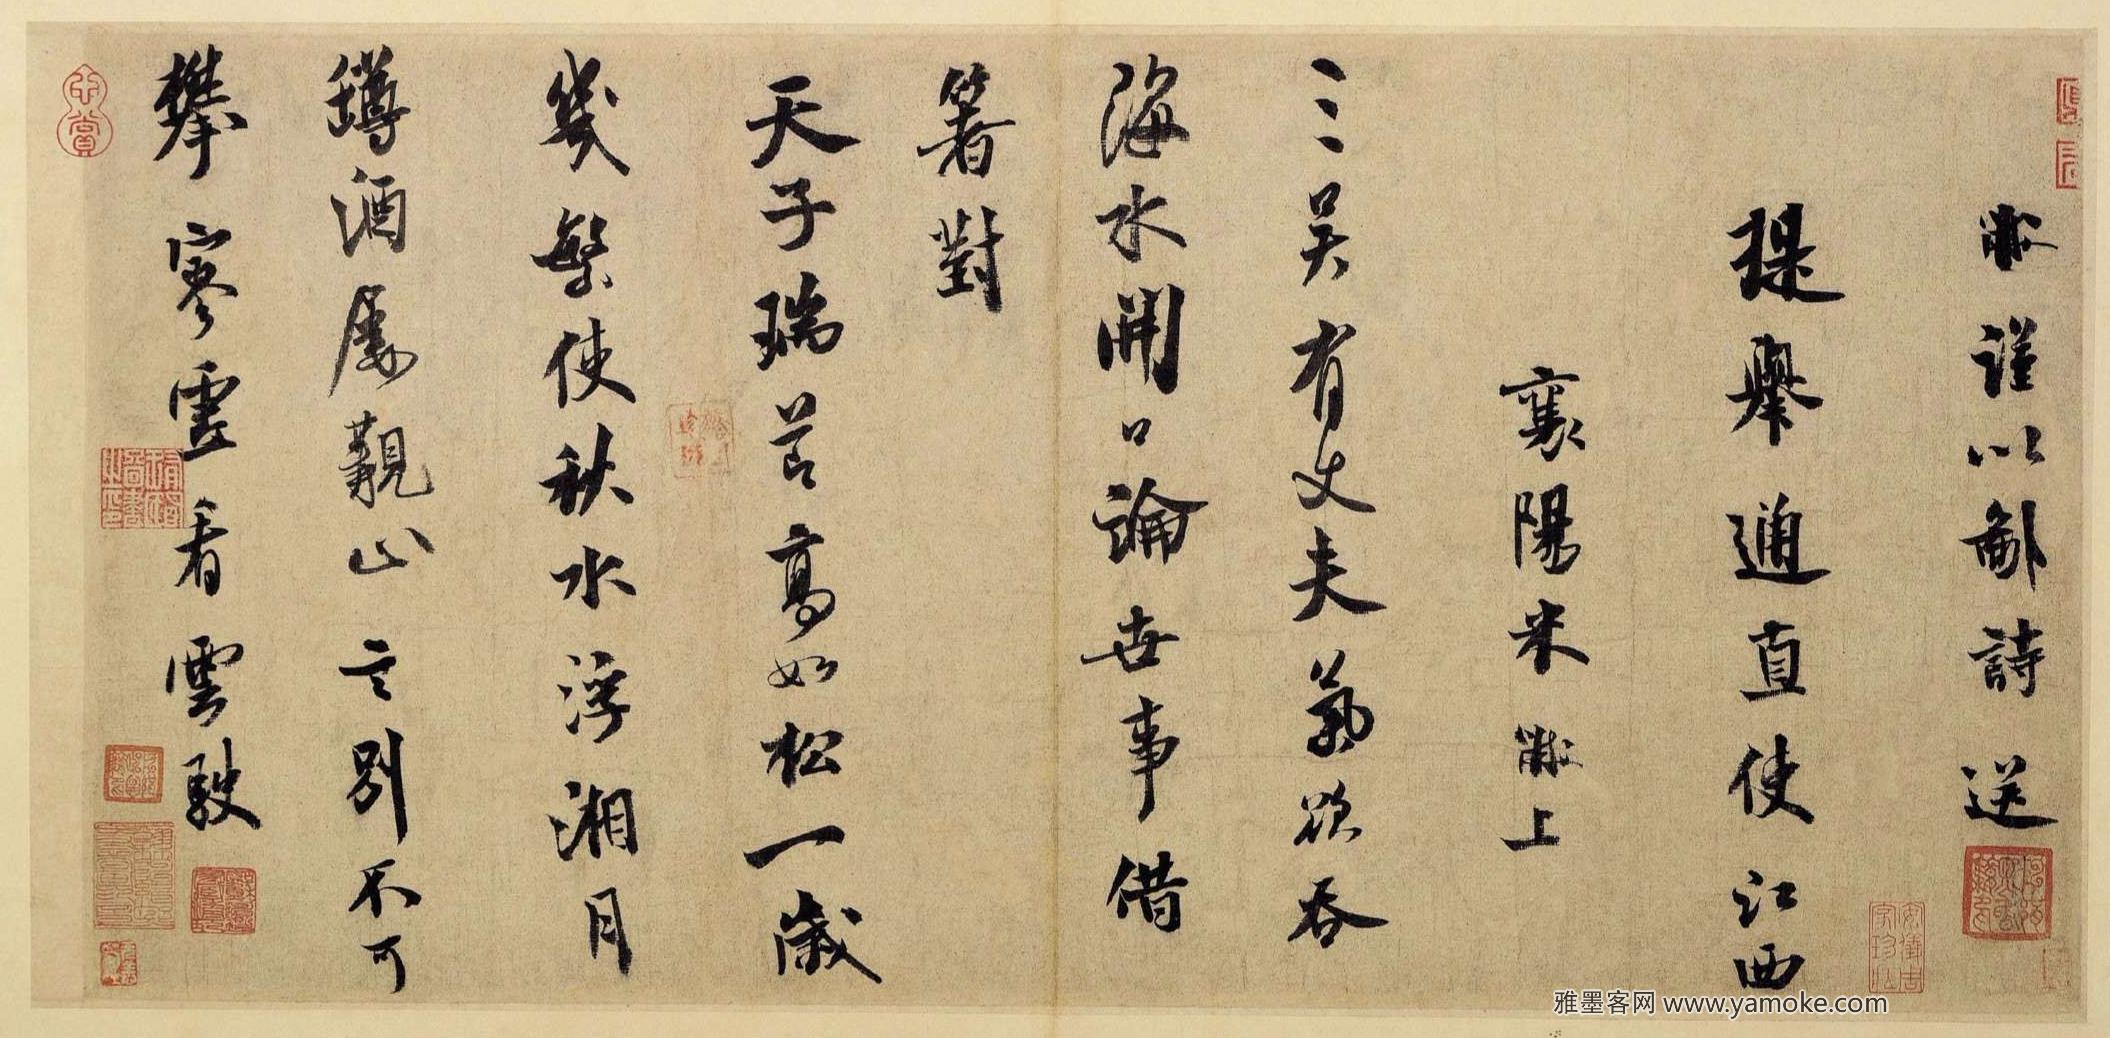 黻謹以鄙詩送
提舉通直使江西
襄陽米黻上
三吳有丈夫氣欲吞
海水開口論世事借
箸對
天子瑞節高如松一歲
幾繁使秋水浮湘月
罇酒屢觀山言別不可
攀寥寥看雲駛
雅墨客网 www.yamoke.com